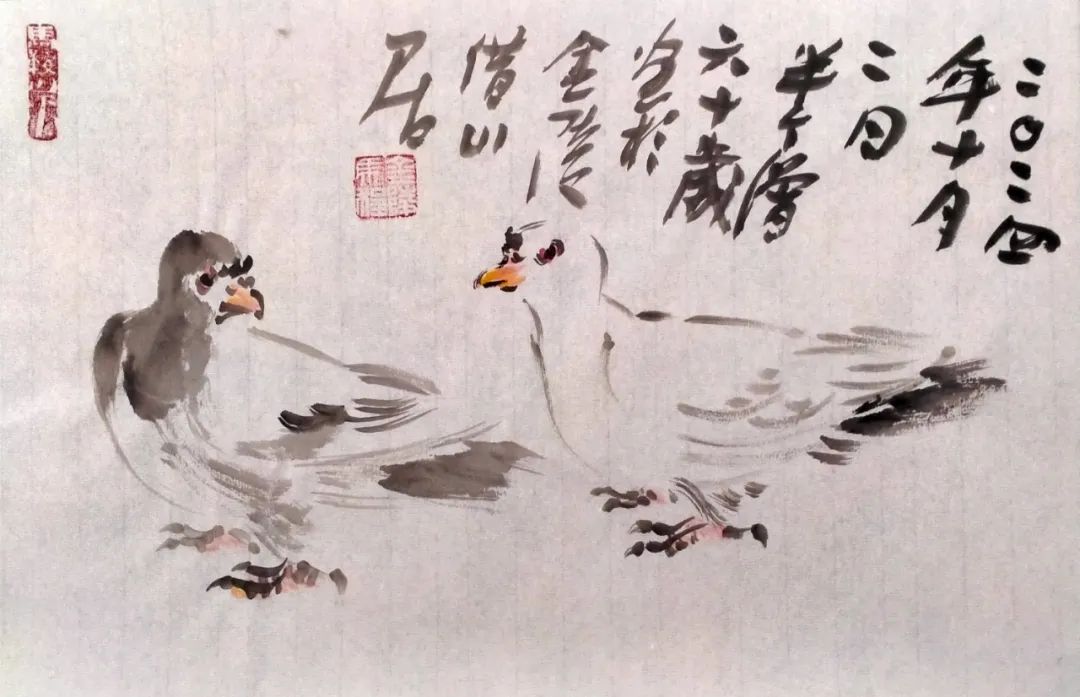 二〇二四
年十月
二日
半丁
六十歲
金陵
借山
居